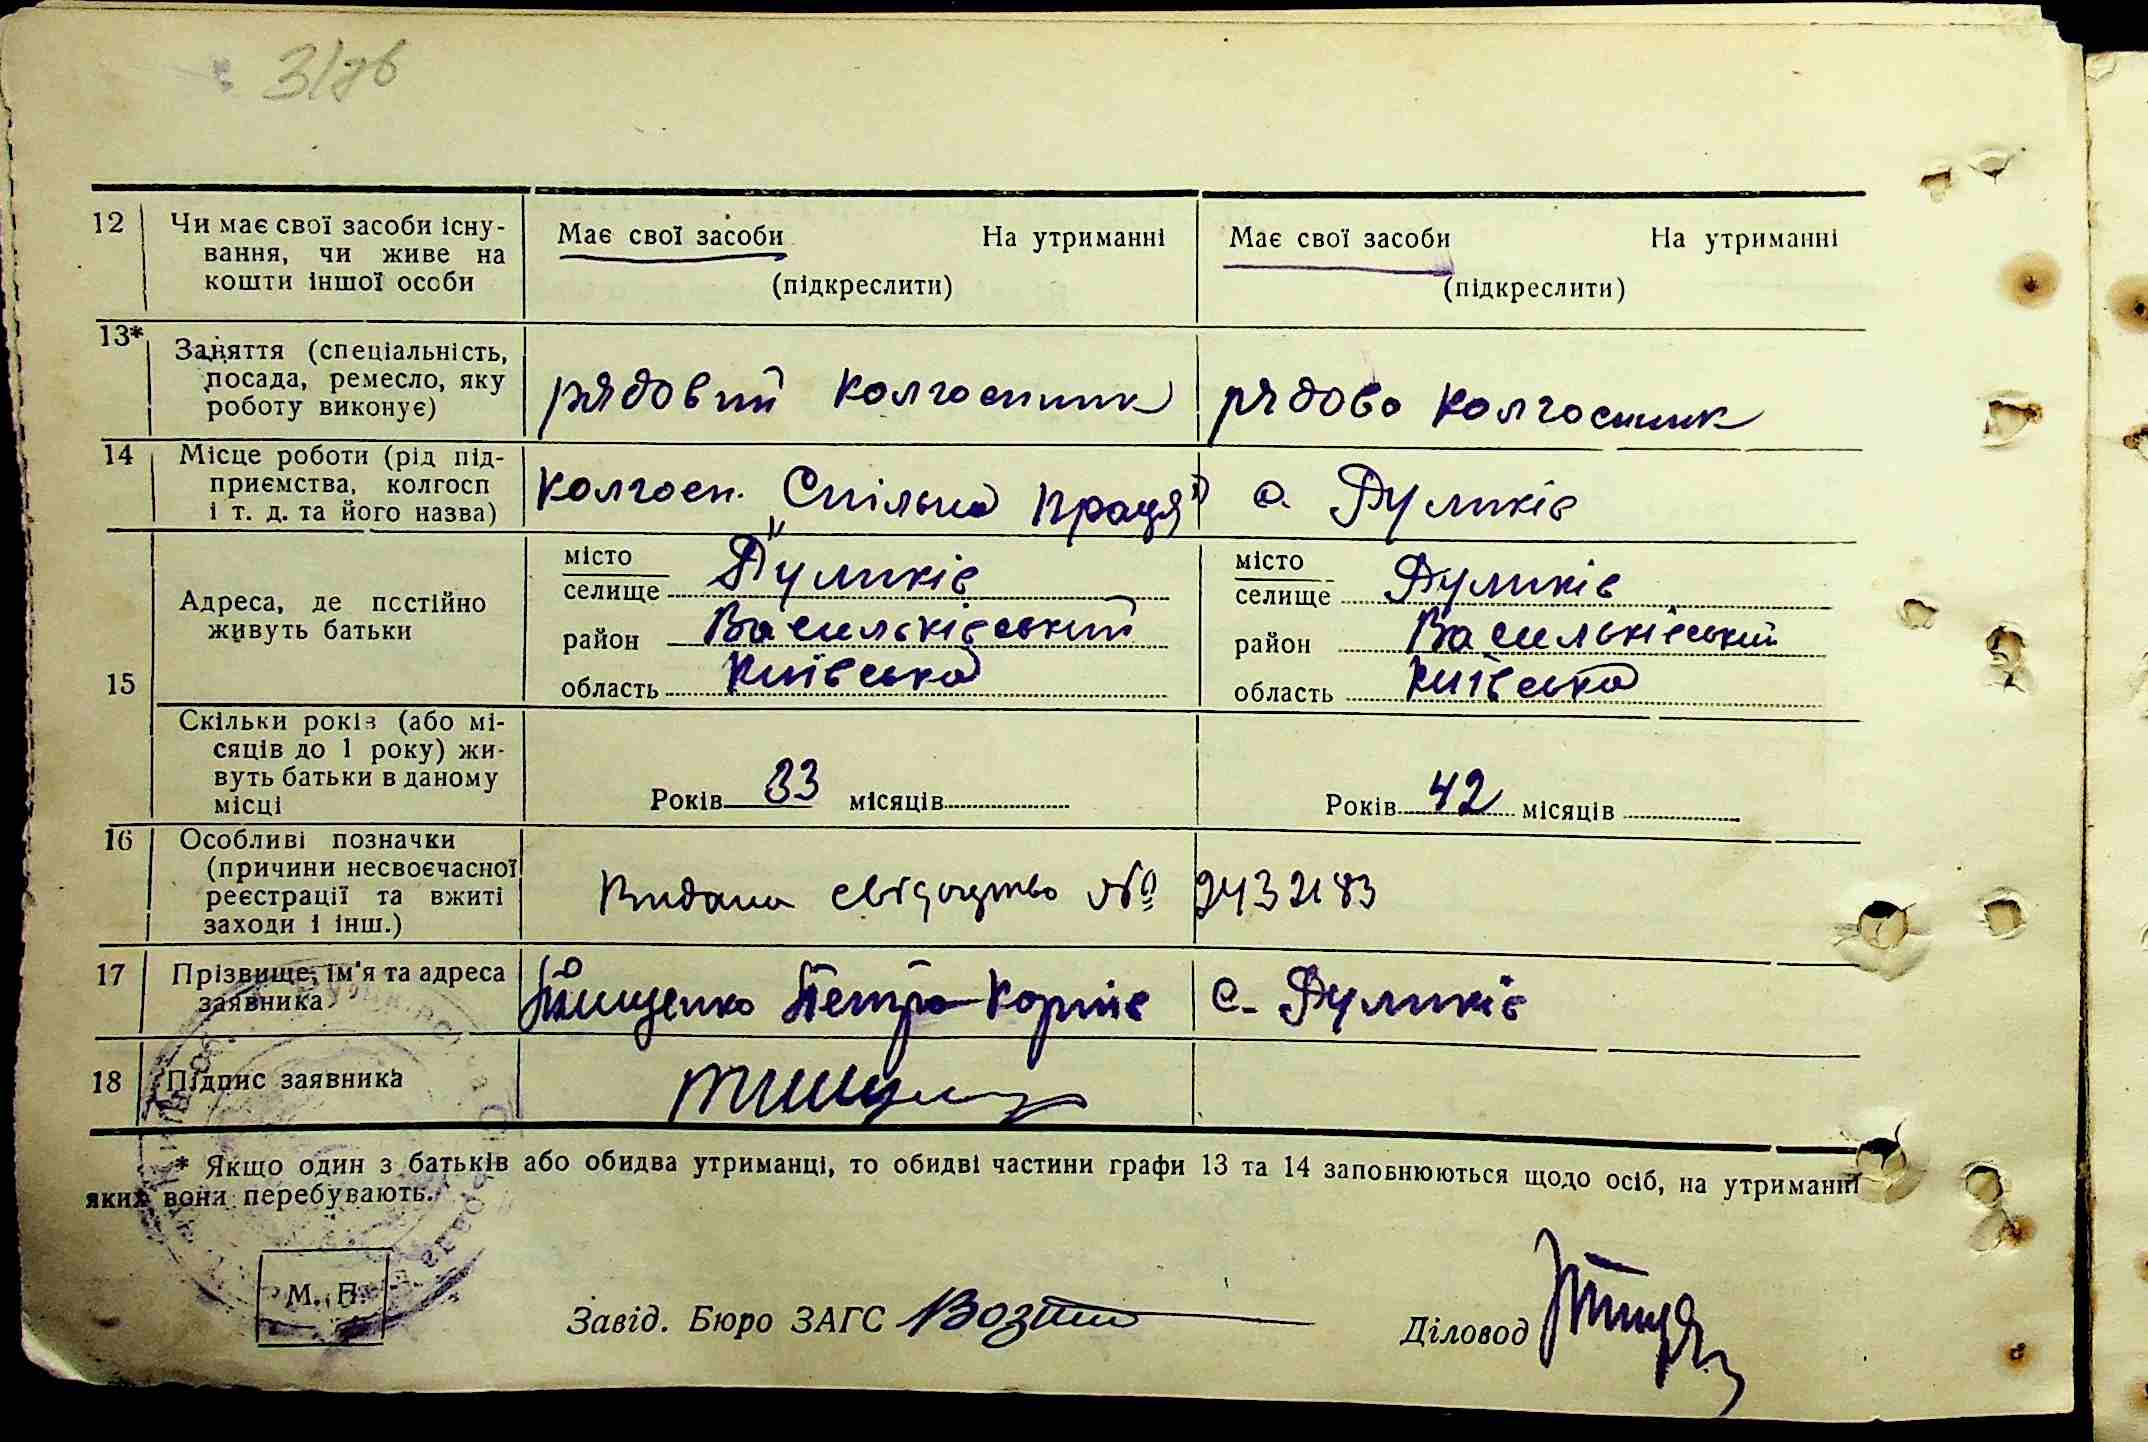 12 Чи має свої засоби існу-
вання, чи живе на
кошти іншої особи
Має свої засоби На утриманні
(підкреслити)
Має свої засоби На утриманні
(підкреслити)
13* Заняття (спеціальність,
посада, ремесло, яку
роботу виконує)
рядовий колгоспник
рядова колгоспник
14 Місце роботи (рід під-
приємства, колгосп
і т. д. та його назва)
колгосп. „Спільна праця”
с. Дуликів
15 Адреса, де постійно
живуть батьки
місто
селище Дуликів
район Васильківський
область Київська
місто
селище Дуликів
район Васильківський
область Київська
Скільки років (або мі-
сяців до 1 року) жи-
вуть батьки в даному
місці
Років 33 місяців
Років 42 місяців
16 Особливі позначки
(причини несвоєчасної
реєстрації та вжиті
заходи і інш.)
Видано свідоцтво № 2432183
17 Прізвище, ім'я та адреса
заявника
Петро Корнів с. Дуликів
18 Підпис заявника
* Якщо один з батьків або обидва утриманці, то обидві частини графи 13 та 14 заповнюються щодо осіб, на утриманні
яких вони перебувають.
М. П.
Завід. Бюро ЗАГС
Діловод